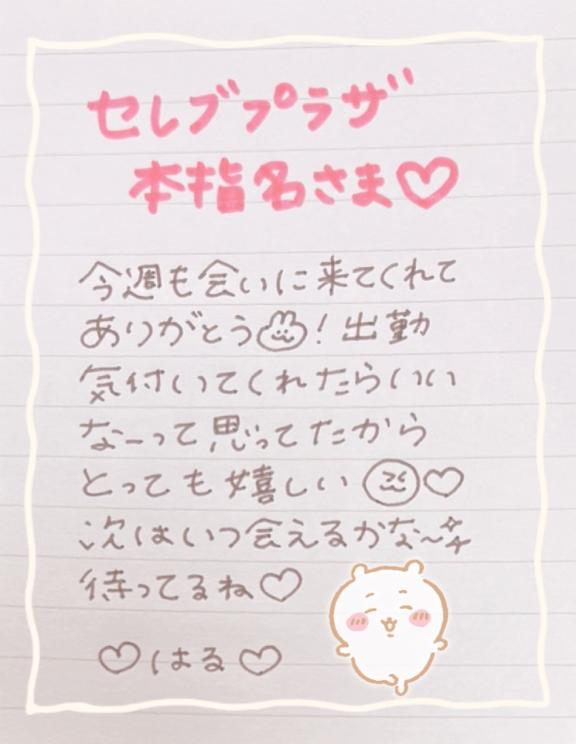 セレブプラザ
本指名さま♡
今週も会いに来てくれて
ありがとう！出勤
気付いてくれたらいい
なーって思ってたから
とっても嬉しい♡
次はいつ会えるかな〜
待ってるね♡
♡はる♡